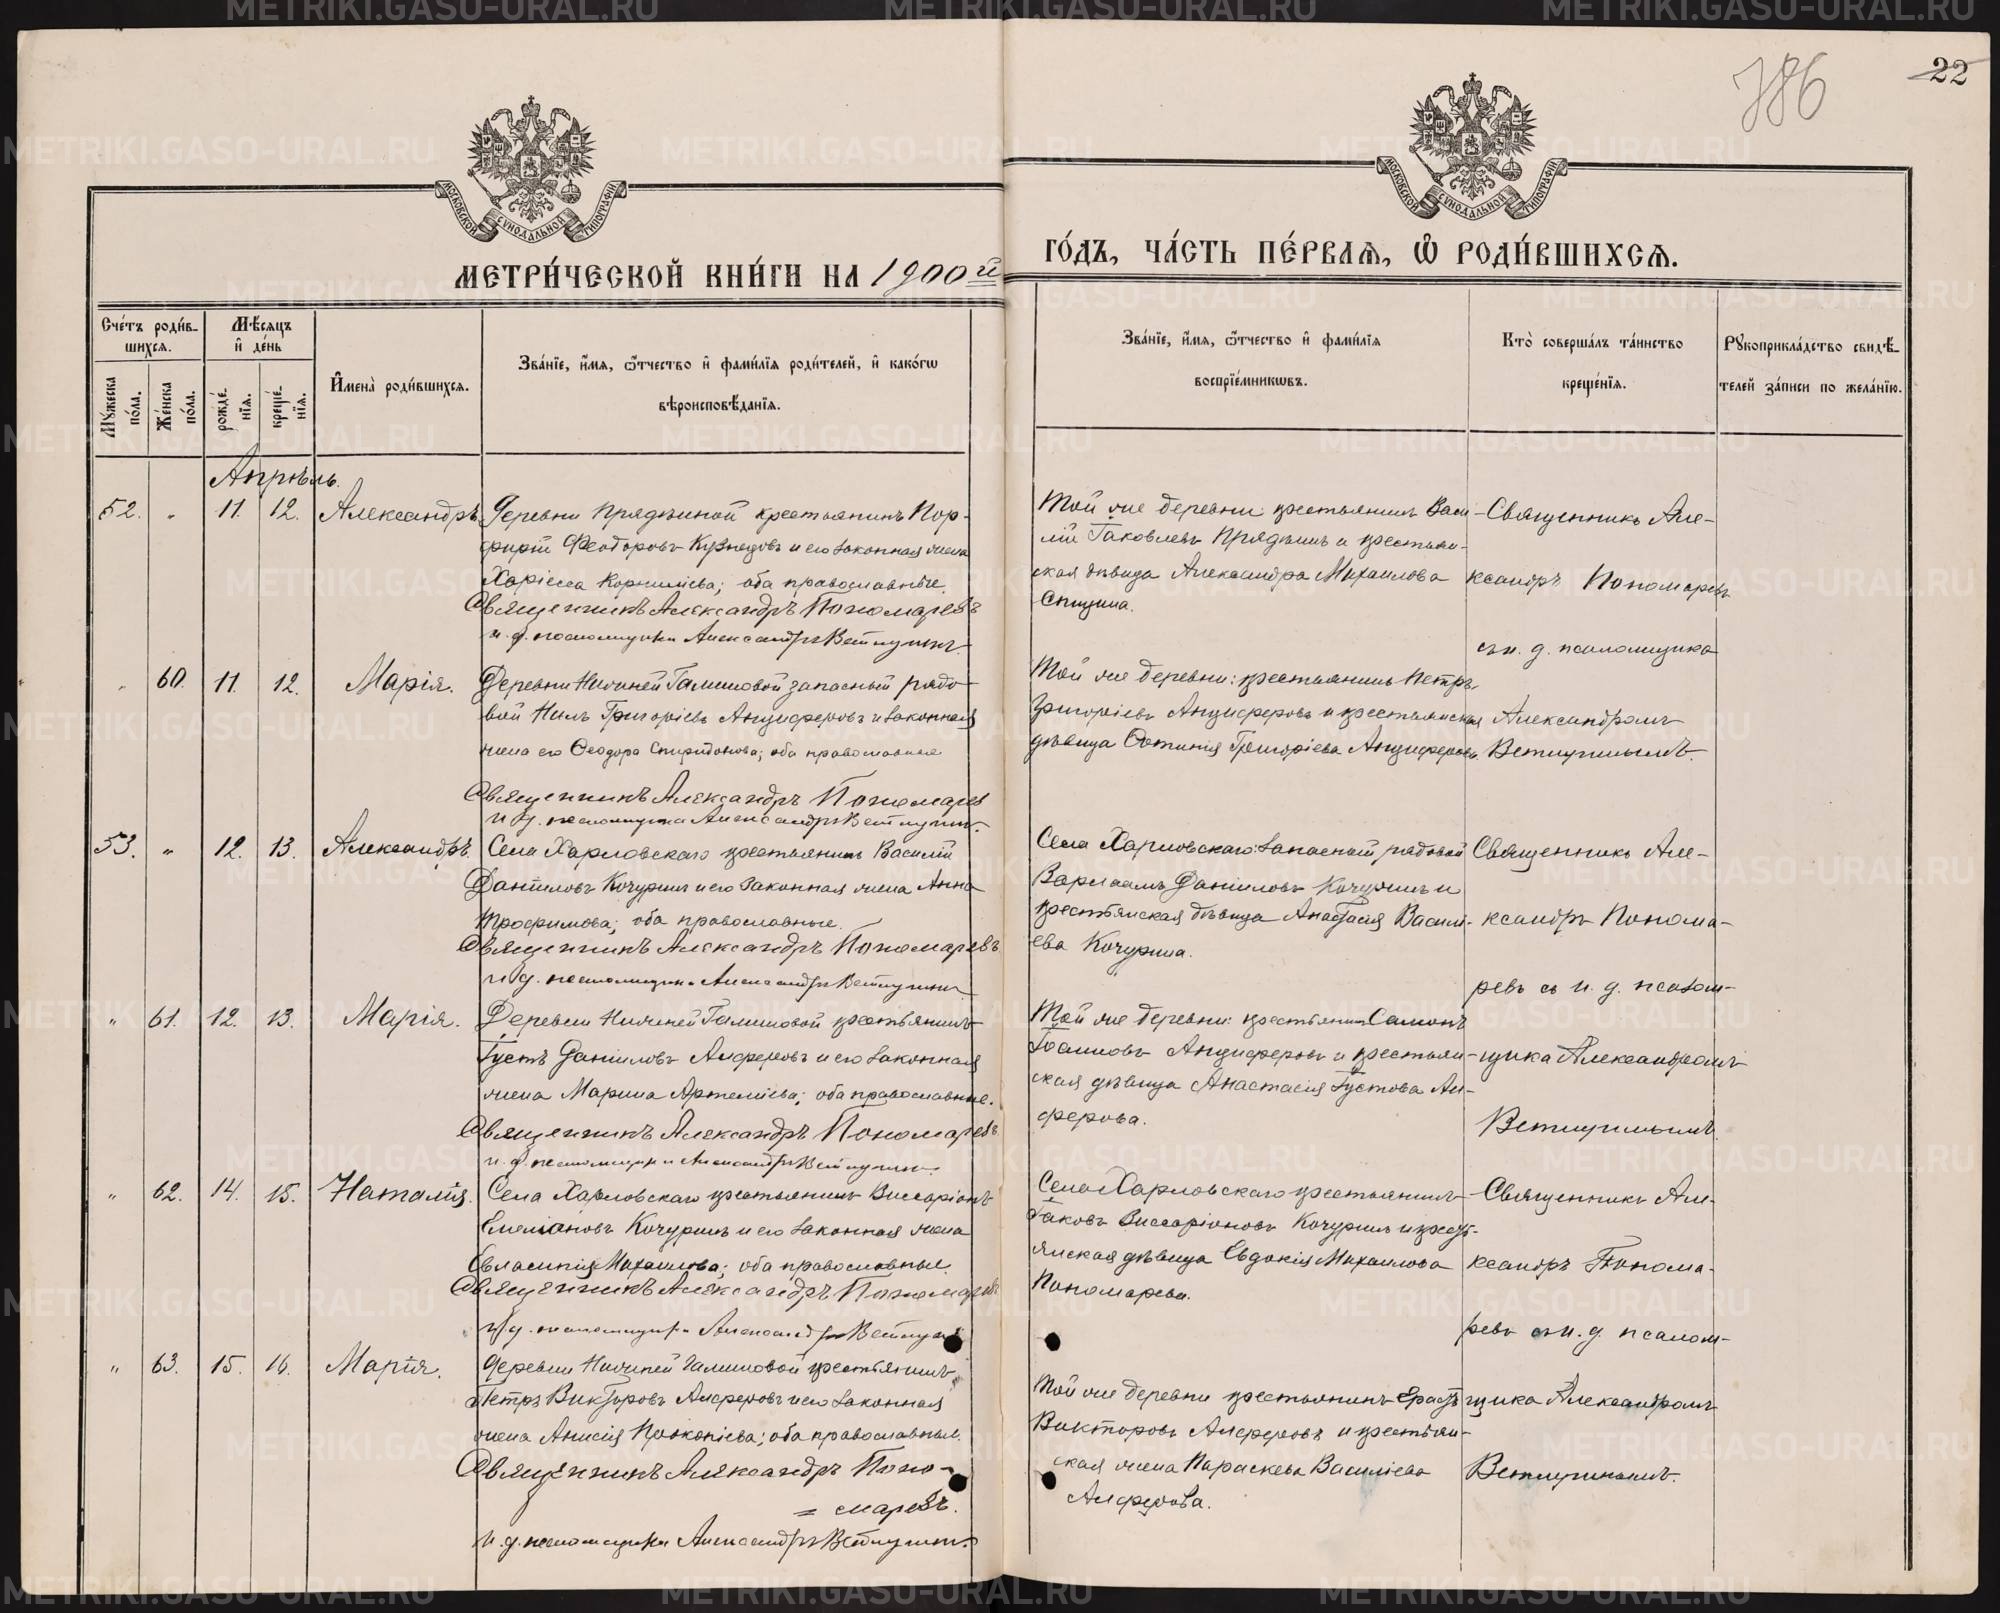 786
22
МОСКОВСКОЙ СУНОДАЛЬНОЙ ТИПОГРАФІИ
МОСКОВСКОЙ СУНОДАЛЬНОЙ ТИПОГРАФІИ
МЕТРИ́ЧЕСКОЙ КНИ́ГИ НА 1900й
ГО́ДЪ, ЧА́СТЬ ПЕ́РВАѦ, Ѡ҆ РОДИ́ВШИХСѦ.
Сче́тъ роди́в-
шихсѧ.
Мꙋ́жеска
по́ла.
Же́нска
по́ла.
Мѣ́сѧцъ
и҆ де́нь
рожде́-
нїѧ.
креще́-
нїѧ.
И҆мена̀ роди́вшихсѧ.
Зва́нїе, и҆́мѧ, ѻ҆́тчество и҆ фами́лїѧ роди́телей, и҆ како́гѡ
вѣроисповѣ́данїѧ.
Зва́нїе, и҆́мѧ, ѻ҆́тчество и҆ фами́лїѧ
воспрїе́мникѡвъ.
Кто̀ соверша́лъ та́инство
креще́нїѧ.
Рꙋкоприкла́дство свидѣ́-
телей за́писи по жела́нїю.
Апрѣль.
52. " 11. 12. Александръ. Деревни Прядѣиной крестьянинъ Пор-
фирій Ѳеодоровъ Кузнецовъ и его законная жена
Харіесса Корниліева; оба православные.
Священникъ Александръ Пономаревъ
и. д. псаломщика Александръ Ветлугинъ.
Той же деревни крестьянинъ Васи-
лій Іаковлевъ Прядѣинъ и крестьян-
ская дѣвица Александра Михаилова
Спицина.
Священникъ Але-
ксандръ Пономаревъ
съ и. д. псаломщика
" 60. 11. 12. Марія. Деревни Нижней Галишовой запасный рядо-
вой Нилъ Григоріевъ Анциферовъ и законная
жена его Ѳеодора Спиридонова; оба православные
Священникъ Александръ Пономарев
и. д. псаломщика Александръ Ветлугинъ.
Той же деревни: крестьянинъ Петръ
Григоріевъ Анциферовъ и крестьянская
дѣвица Фотинія Григоріева Анциферова.
Александромъ
Ветлугинымъ.
53. " 12. 13. Александръ. Села Харловскаго крестьянинъ Василій
Даніиловъ Кочуринъ и его законная жена Анна
Трофимова; оба православные.
Священникъ Александръ Пономаревъ
и. д. псаломщика Александръ Ветлугинъ
Села Харловскаго: запасный рядовой
Варлаамъ Даніиловъ Кочуринъ и
крестьянская дѣвица Анастасія Васил-
ева Кочурина.
Священникъ Але-
ксандръ Понома-
ревъ съ и. д. псалом-
" 61. 12. 13. Марія. Деревни Нижней Галишовой крестьянинъ
Густъ Даніиловъ Алферовъ и его законная
жена Марина Артеміева; оба православные.
Священникъ Александръ Пономаревъ
и. д. псаломщика Александръ Ветлугинъ.
Той же деревни: крестьянинъ Самонъ
Іоанновъ Анциферовъ и крестьян-
ская дѣвица Анастасія Густова Ал-
ферова.
щика Александромъ
Ветлугинымъ.
" 62. 14. 15. Наталія. Села Харловскаго крестьянинъ Виссаріонъ
Емеліановъ Кочуринъ и его законная жена
Евлампія Михаилова; оба православные.
Священникъ Александръ Пономаревъ
и. д. псаломщика Александръ Ветлугинъ
Села Харловскаго крестьянинъ
Іаковъ Виссаріоновъ Кочуринъ и крест-
янская дѣвица Евдокія Михаилова
Пономарева.
Священникъ Але-
ксандръ Понома-
ревъ съ и. д. псалом-
" 63. 15. 16. Марія. Деревни Нижней Галишовой крестьянинъ
Петръ Викторовъ Алферовъ и его законная
жена Анисія Прокопіева; оба православные.
Священникъ Александръ Поно-
= маревъ.
и. д. псаломщика Александръ Ветлугинъ.
Той же деревни крестьянинъ Ерастъ
Викторовъ Алферовъ и крестьян-
ская жена Параскева Василіева
Алферова.
щика Александромъ
Ветлугинымъ.
METRIKI.GASO-URAL.RU